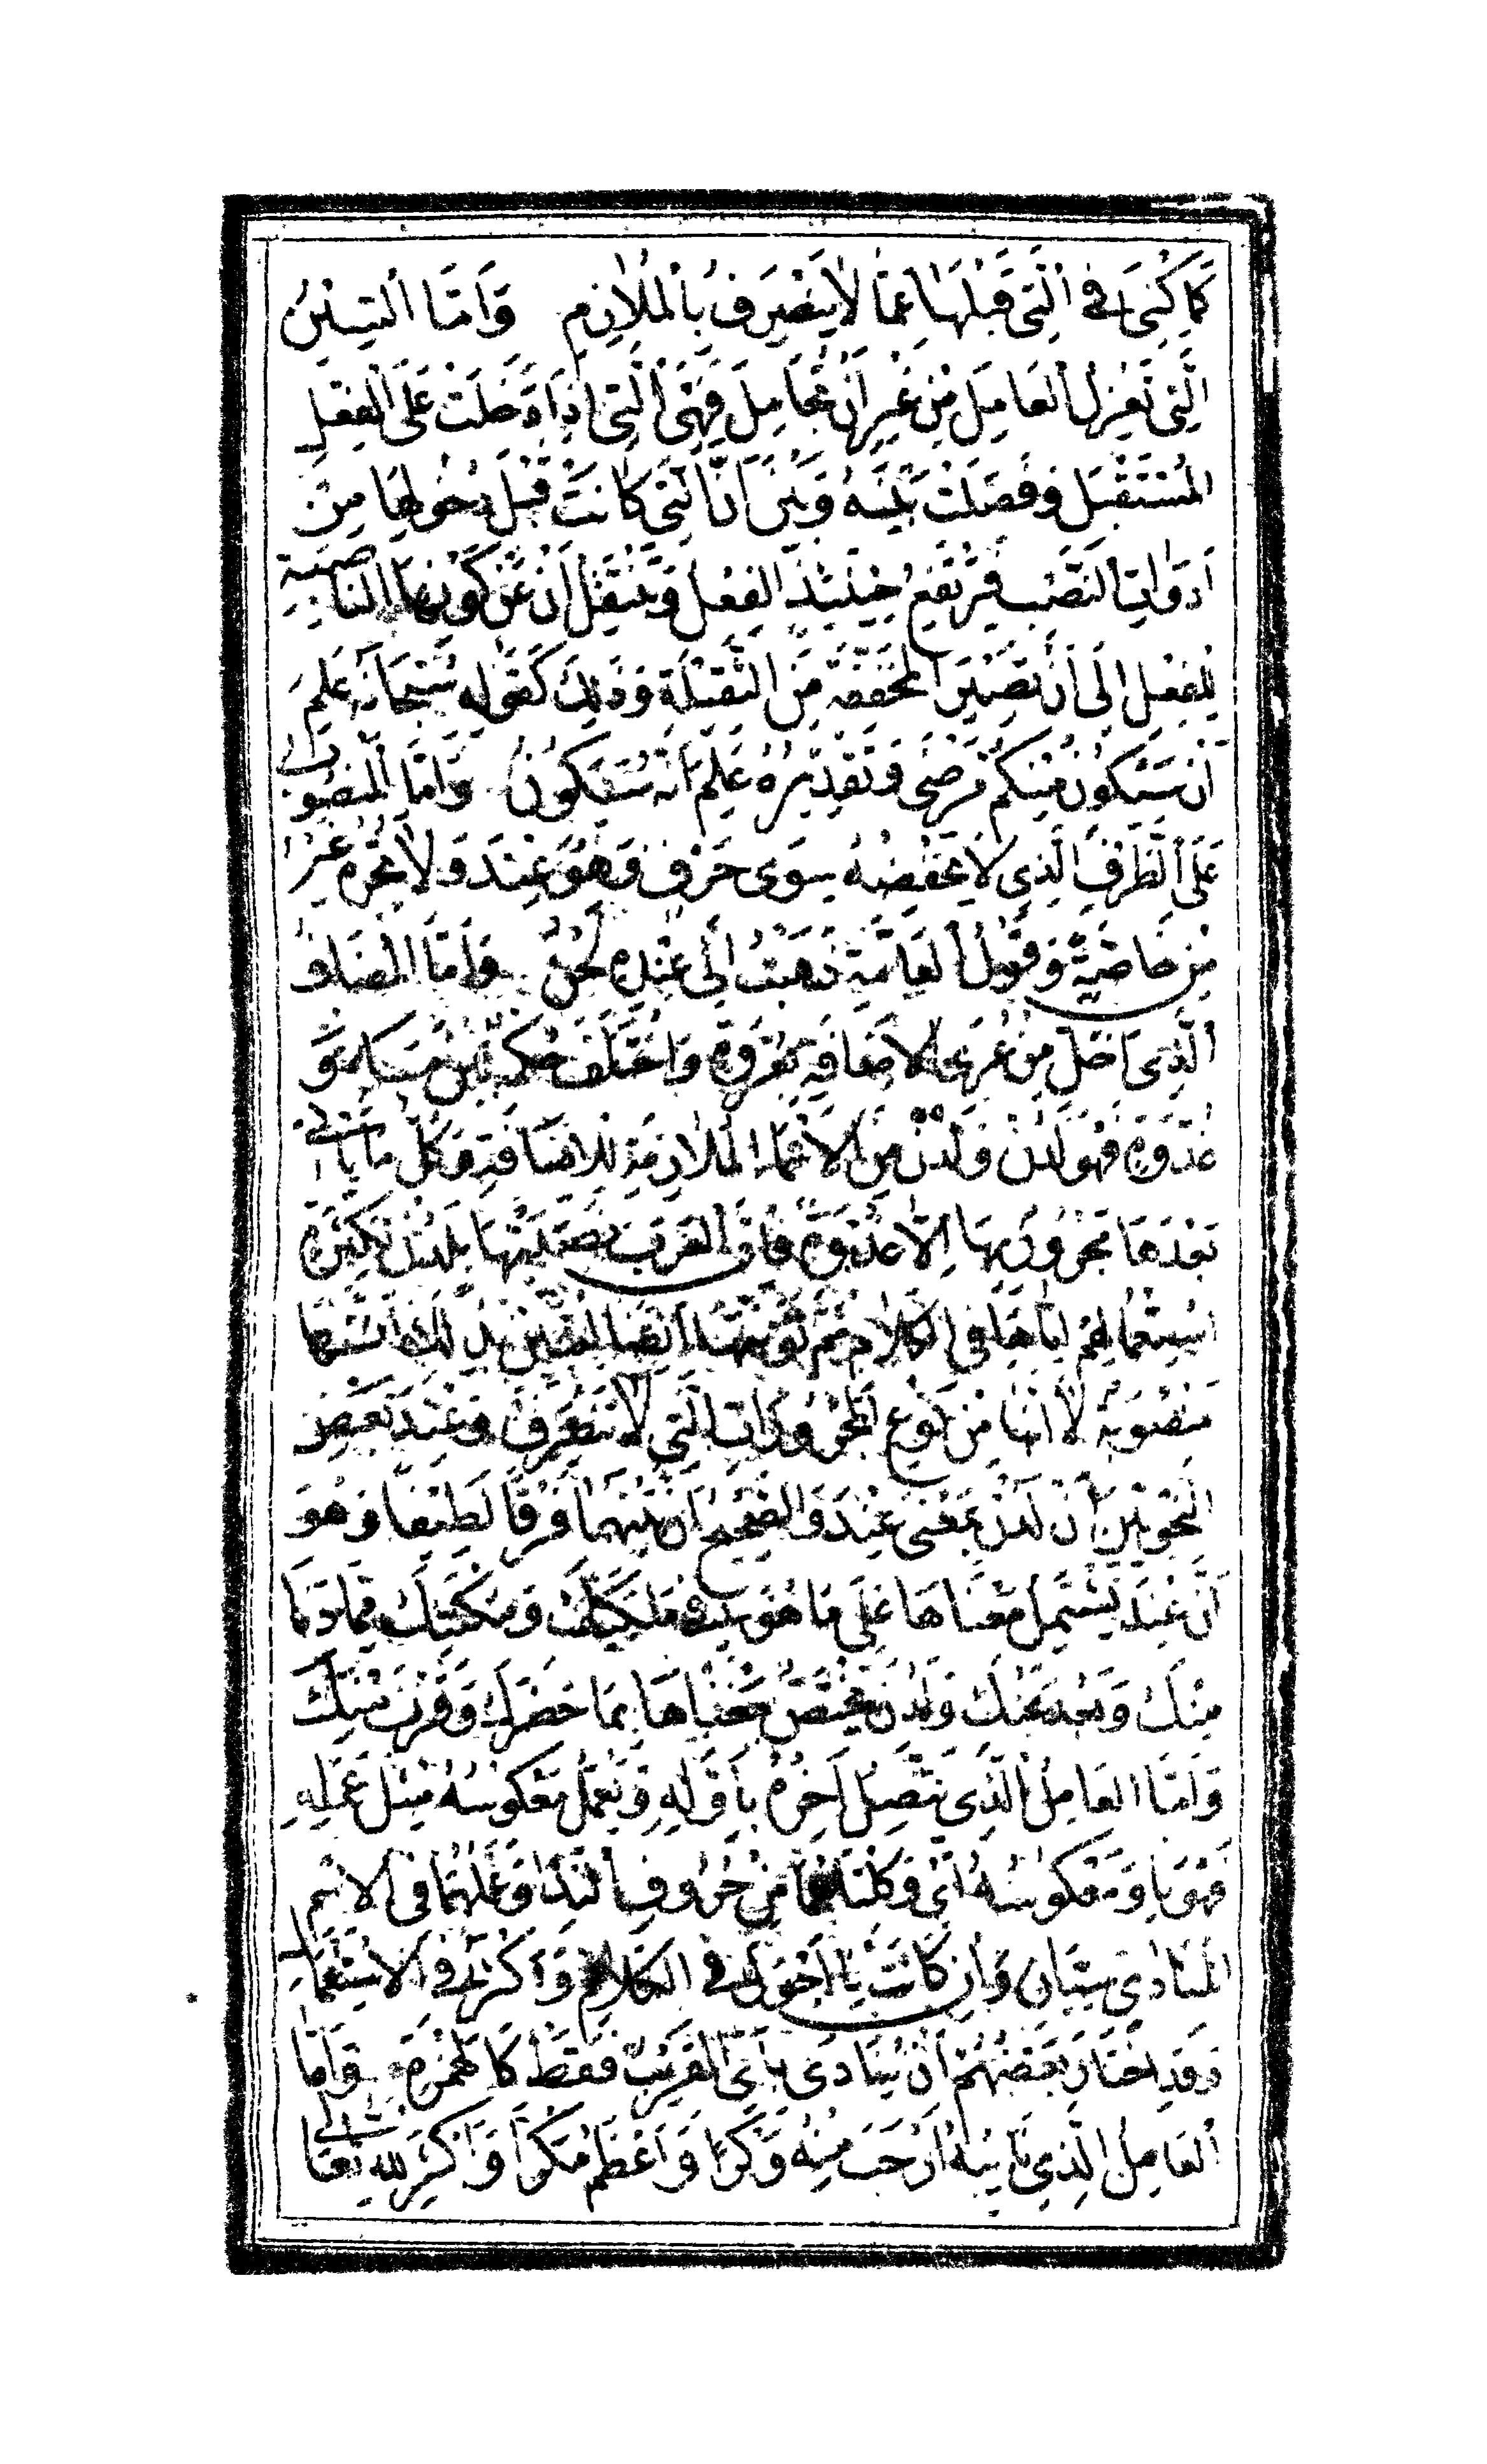 كَمَا كُنِىَ فِى الَّتِى قَبْلَهَا عَمَّا لَا يَنْصَرِفُ بِالْمُلَازِمِ وَاَمَّا السِّيْنُ
الَّتِى تَعْزِلُ الْعَامِلَ مِنْ غَيْرِ اَنْ تُجَامِلَ فَهِىَ الَّتِى اِذَا دَخَلَتْ عَلَى الْفِعْلِ
المُسْتَقْبَلِ وَفَصَلَتْ بَيْنَهُ وَبَيْنَ اَنْ الَّتِى كَانَتْ قَبْلَ دُخُولِهَا مِنْ
اَدَوَاتِ النَّصْبِ فَيَرْتَفِعُ حِيْنَئِذٍ الفِعْلُ وَتَنْتَقِلُ اَنْ عَنْ كَوْنِهَا النَّاصِبَةِ
لِلْفِعْلِ اِلَى اَنْ تَصِيْرَ المُخَفَّفَةَ مِنَ الثَّقِيْلَةِ وَذَلِكَ كَقَوْلِهِ سُبْحَانَهُ عَلِمَ
اَنْ سَيَكُونُ مِنْكُمْ مَرْضَى وَتَقْدِيْرُهُ عَلِمَ اَنَّهُ سَيَكُونُ وَاَمَّا الْمَنْصُوبُ
عَلَى الظَّرْفِ الَّذِى لَا يَخْفِضُهُ سِوَى حَرْفٍ فَهُوَ عِنْدَ وَلَا يَجُرُّهُ غَيْرُ
مِنْ خَاصَّةً وَقَوْلُ الْعَامَّةِ ذَهَبْتُ اِلَى عِنْدِهِ لَحْنٌ وَاَمَّا الْمُضَافُ
الَّذِى اَخَلَّ مِنْ عُرَى الْاِضَافَةِ بِعُرْوَةٍ وَاخْتَلَفَ حُكْمُهُ بَيْنَ مَسَاءٍ وَ
غُدْوَةٍ فَهُوَ لَدُنْ وَلَدُنْ مِنَ الْاَسْمَاءِ الْمُلَازِمَةِ لِلْاِضَافَةِ وَكُلُّ مَا يَاْتِى
بَعْدَهَا مَجْرُورٌ بِهَا اِلَّا غُدْوَةً فَاِنَّ الْعَرَبَ نَصَبَتْهَا بِلَدُنْ لِكَثْرَةِ
اسْتِعْمَالِهِمْ اِيَّاهَا فِى الْكَلَامِ ثُمَّ نَوَّنَتْهَا اَيْضًا لِيَتَبَيَّنَ بِذَلِكَ اَنَّهَا
مَنْصُوبَةٌ لَا اَنَّهَا مِنْ نَوْعِ الْمَجْرُورَاتِ الَّتِى لَا تَنْصَرِفُ وَعِنْدَ بَعْضِ
النَّحْوِيّيْنَ اَنَّ لَدُنْ بِمَعْنَى عِنْدَ وَالصَّحِيْحُ اَنَّ بَيْنَهُمَا فَرْقًا لَطِيْفًا وَهُوَ
اَنَّ عِنْدَ يَشْتَمِلُ مَعْنَاهَا عَلَى مَا هُوَ فِى مِلْكِكَ وَمَكَنَتِكَ مِمَّا دَنَا
مِنْكَ وَبَعُدَ عَنْكَ وَلَدُنْ يَخْتَصُّ مَعْنَاهَا بِمَا حَضَرَكَ وَقَرُبَ مِنْكَ
وَاَمَّا الْعَامِلُ الَّذِى يَتَّصِلُ آخِرُهُ بِاَوَّلِهِ وَيَعْمَلُ مَعْكُوسُهُ مِثْلَ عَمَلِهِ
فَهُوَ يَا وَمَعْكُوسُهُ اَىْ وَكِلْتَاهُمَا مِنْ حُرُوفِ النِّدَا وَعَمَلُهُمَا فِى الْاِسْمِ
الْمُنَادَى سِيَّانِ وَاِنْ كَانَتْ يَا اَجْوَلَ فِى الْكَلَامِ وَاَكْثَرَ فِى الْاِسْتِعْمَالِ
وَقَدِ اخْتَارَ بَعْضُهُمْ اَنْ يُنَادَى بِاَىْ الْقَرِيْبُ فَقَطْ كَالْهَمْزَةِ وَاَمَّا
الْعَامِلُ الَّذِى نَائِبُهُ اَرْحَبُ مِنْهُ وَكْرًا وَاَعْظَمُ مَكْرًا وَاَكْثَرُ لِلهِ تَعَالَى